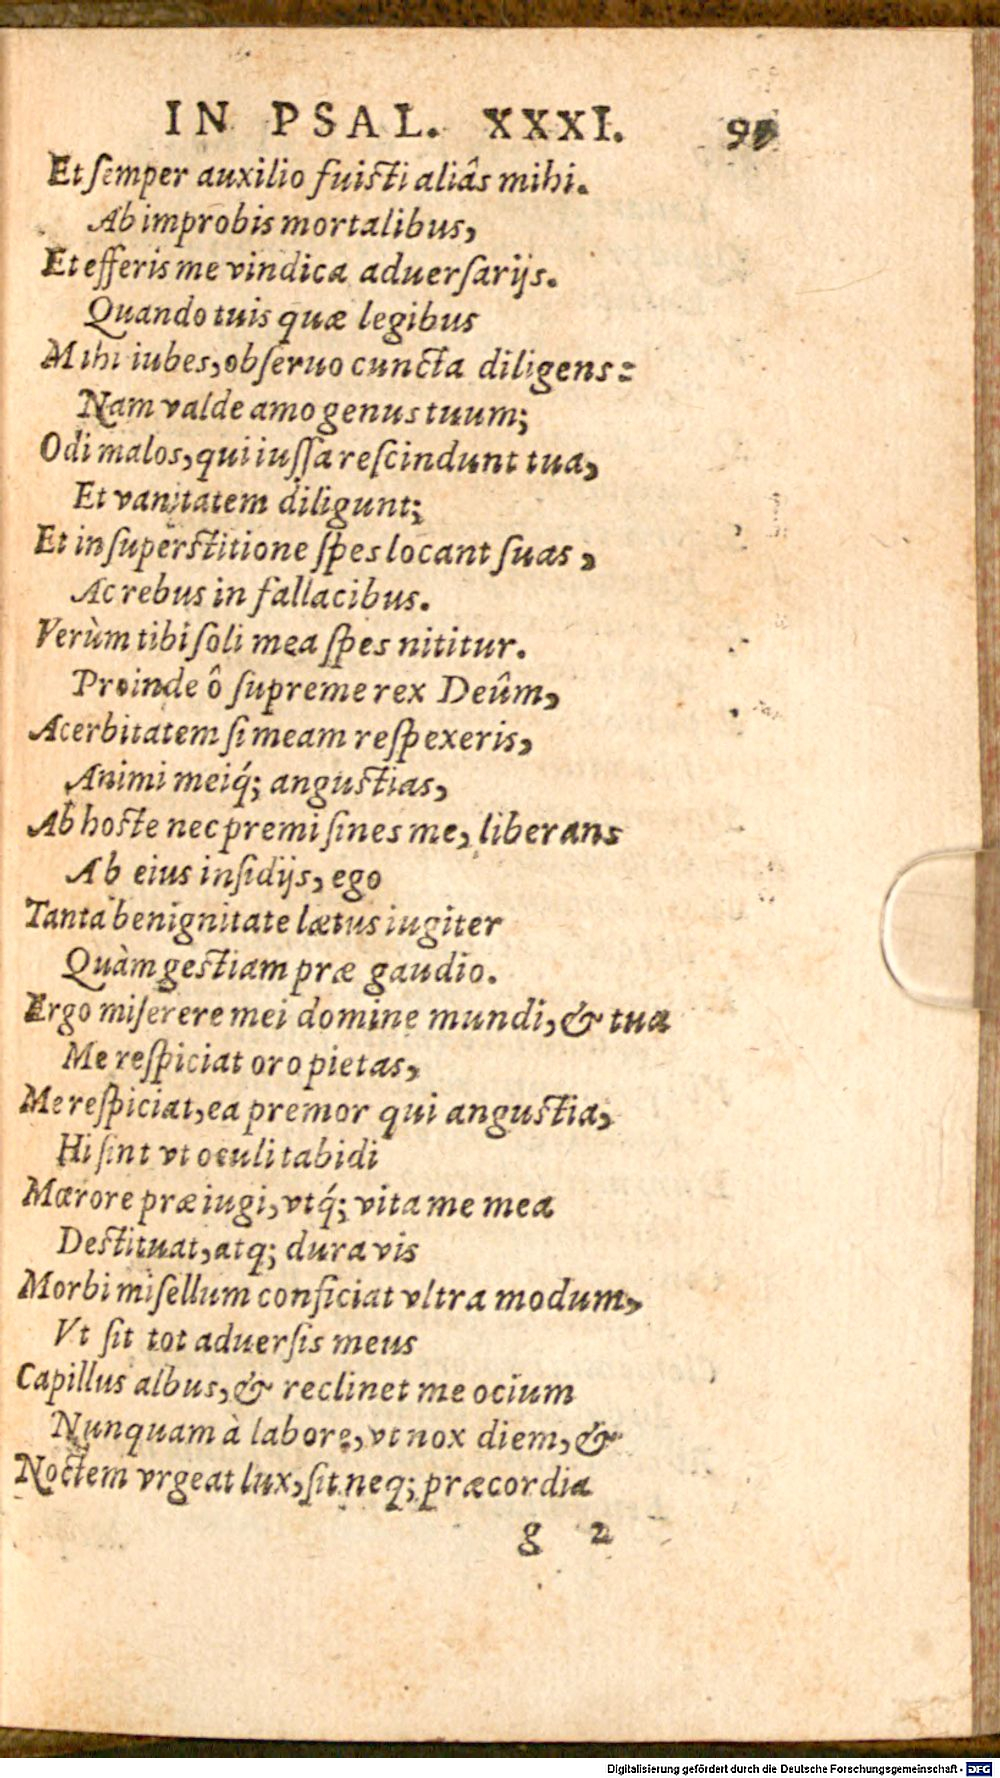 IN PSAL. XXXI.
Et semper auxilio fuisti aliâs mihi.
Ab improbis mortalibus,
Et efferis me vindica aduersarijs.
Quando tuis quæ legibus
Mihi iubes, obseruo cuncta diligens:
Nam valde amo genus tuum;
Odi malos, qui iussa rescindunt tua,
Et vanitatem diligunt;
Et in superstitione spes locant suas,
Ac rebus in fallacibus.
Verùm tibi soli mea spes nititur.
Proinde ô supreme rex Deûm,
Acerbitatem si meam respexeris,
Animi meiq́; angustias,
Ab hoste nec premi sines me, liberans
Ab eius insidijs, ego
Tanta benignitate lætus iugiter
Quàm gestiam præ gaudio.
Ergo miserere mei domine mundi, & tua
Me respiciat oro pietas,
Me respiciat, ea premor qui angustia,
Hi sint vt oculi tabidi
Mærore præ iugi, vtq́; vita me mea
Destituat, atq; dura vis
Morbi misellum conficiat vltra modum,
Vt sit tot aduersis meus
Capillus albus, & reclinet me ocium
Nunquam à labore, vt nox diem, &
Noctem vrgeat lux, sit neq; præcordia
g 2
Digitalisierung gefördert durch die Deutsche Forschungsgemeinschaft - DFG